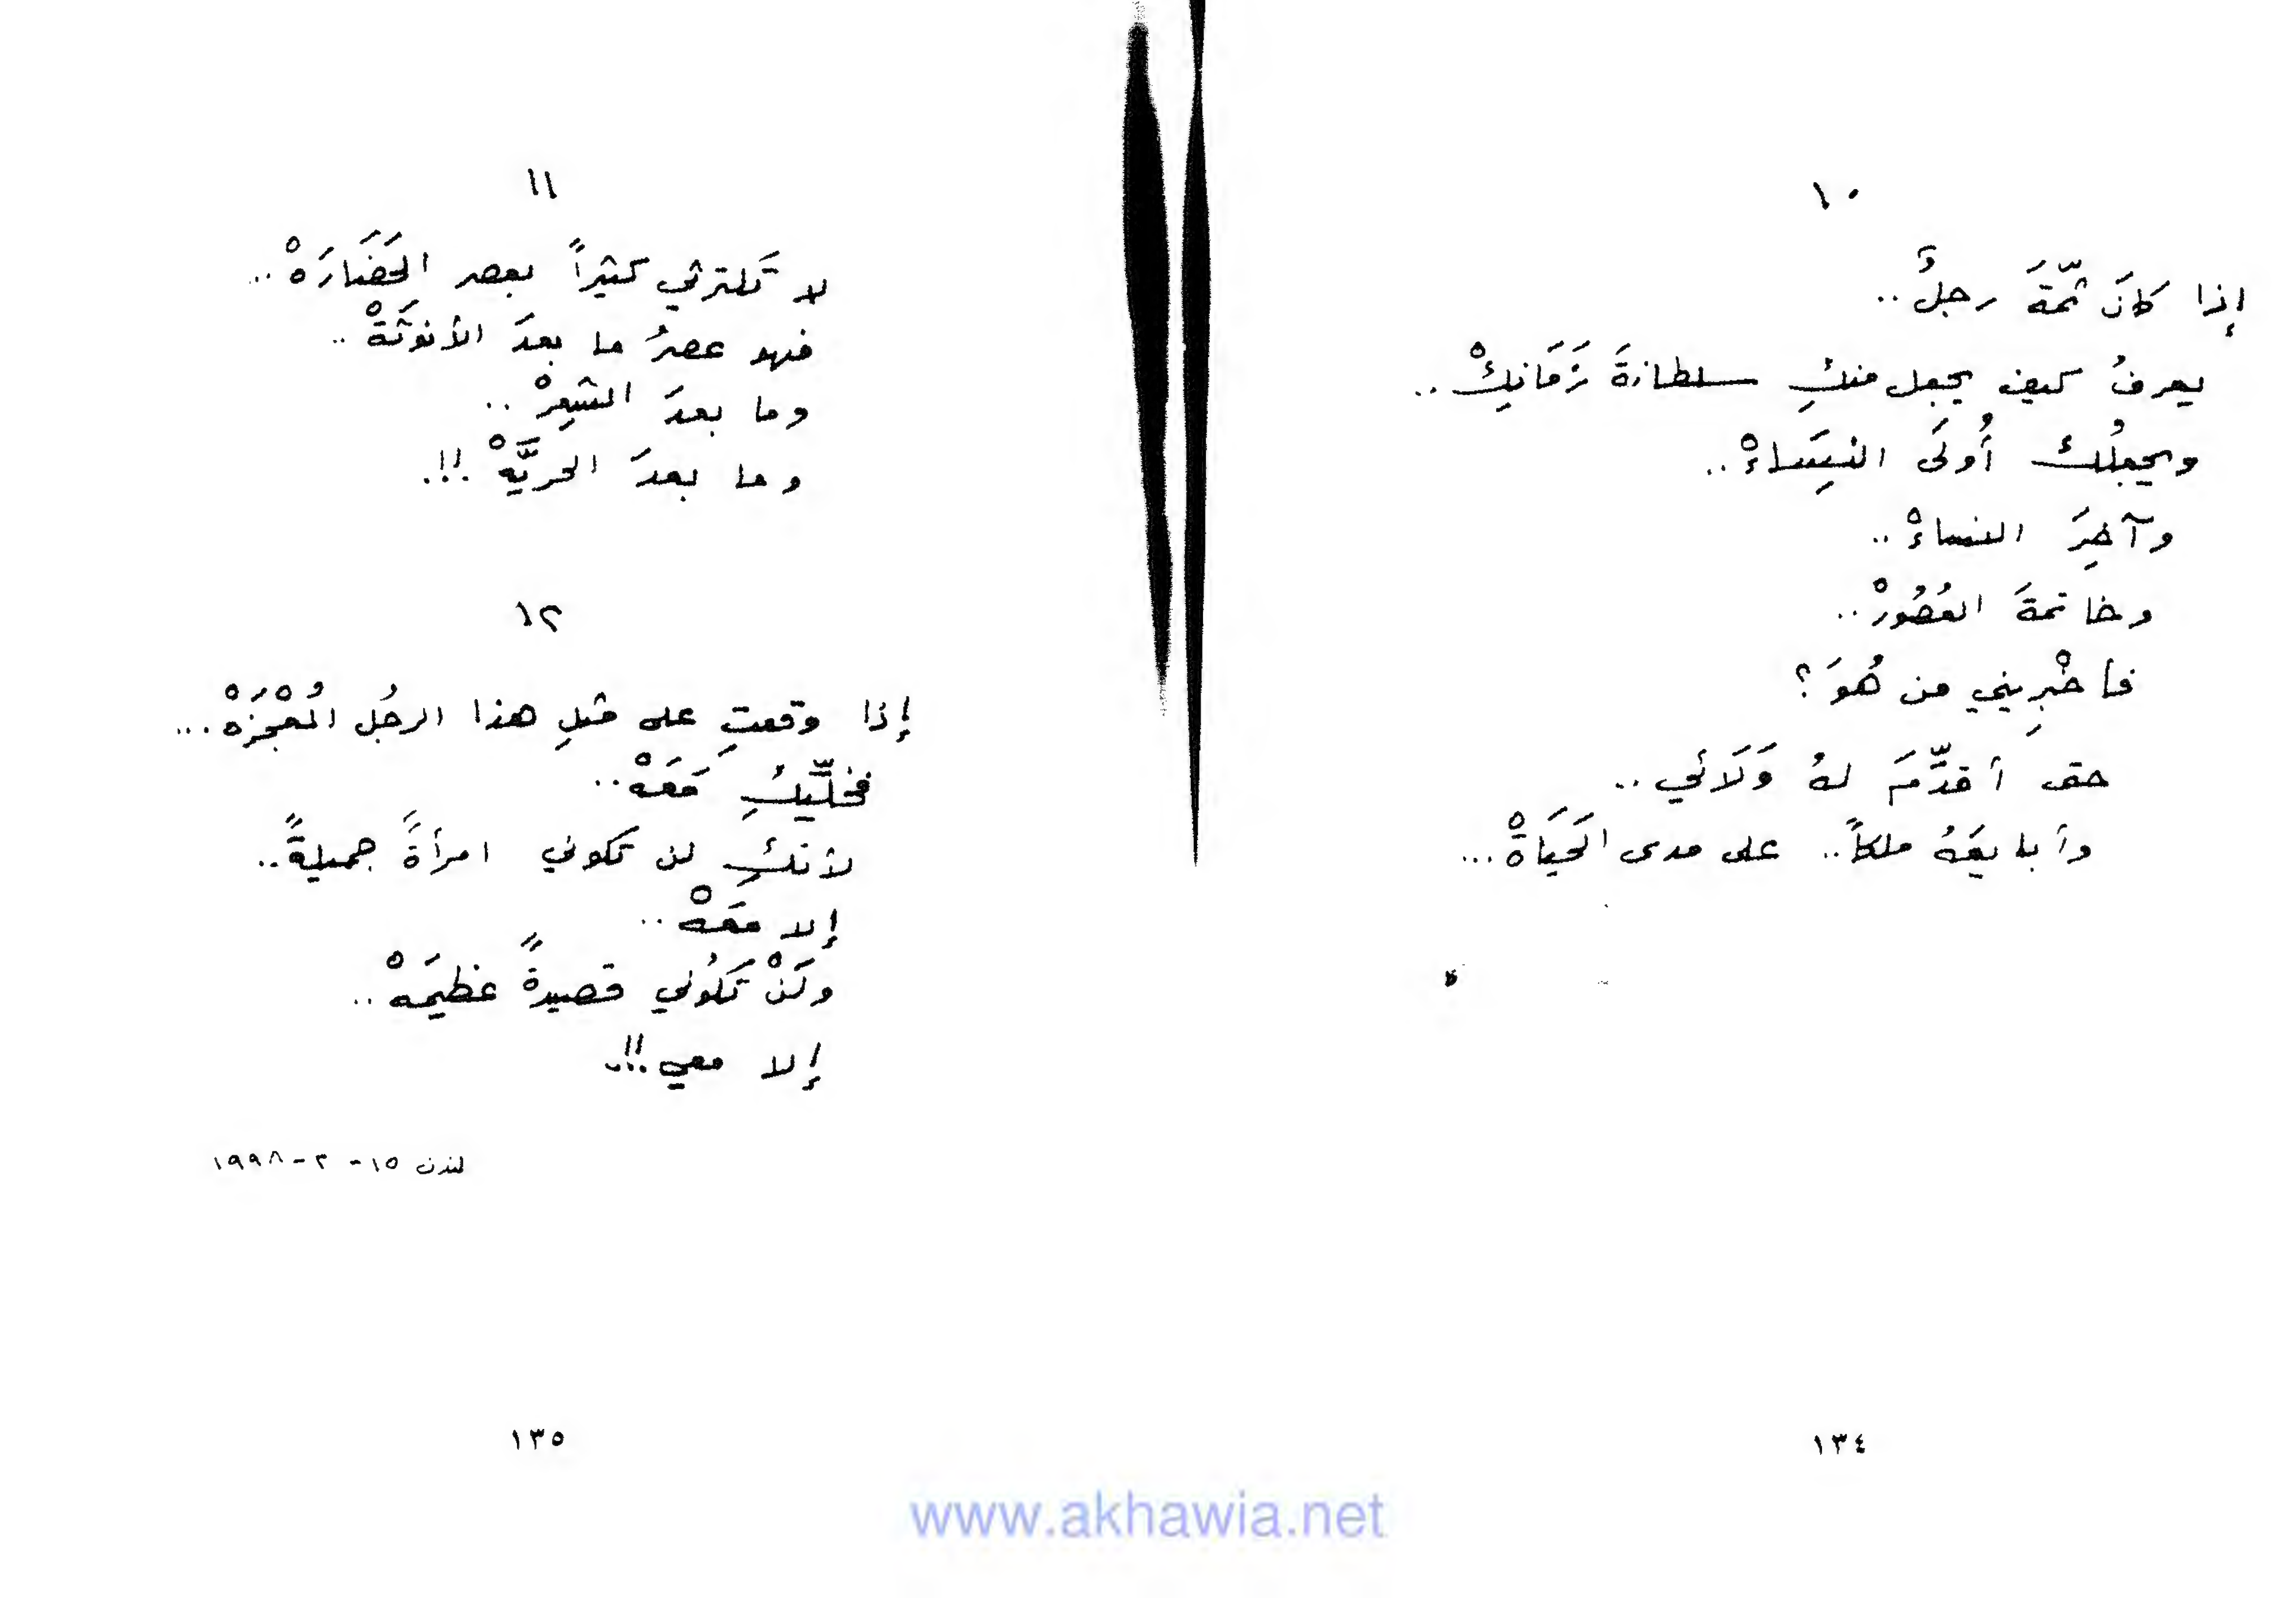 ١٠
إذا كانَ ثمّةَ رجلٌ..
يعرفُ كيف يجعل منكِ سلطانةَ زَمَانِكْ..
ويجعلُك أُولَى النِسَاءْ..
وآخِرَ النساءْ..
وخاتمةَ العُصُورْ..
فأخْبِريني من هُوَ؟
حتى أقدِّمَ لهُ وَلَائي..
وأبايعَهُ ملكاً.. على مدى الحَيَاةْ...
١٣٤
١١
لا تَكترثي كثيراً بعصر الحَضَارَهْ..
فهو عصرُ ما بعدَ الأنوثَةْ..
وما بعدَ الشِعِرْ..
وما بعدَ الحريَّهْ!!.
١٢
إذا وقعتِ على مثلِ هذا الرجُل المُعْجِزَهْ...
فخلِّيكِ مَعَهْ..
لأنكِ لن تكوني امرأةً جميلةً..
إلا معَهْ..
ولَنْ تَكُوني قصيدةً عظيمَهْ..
إلا معي!!.
لندن ١٥-٢-١٩٩٨
١٣٥
www.akhawia.net